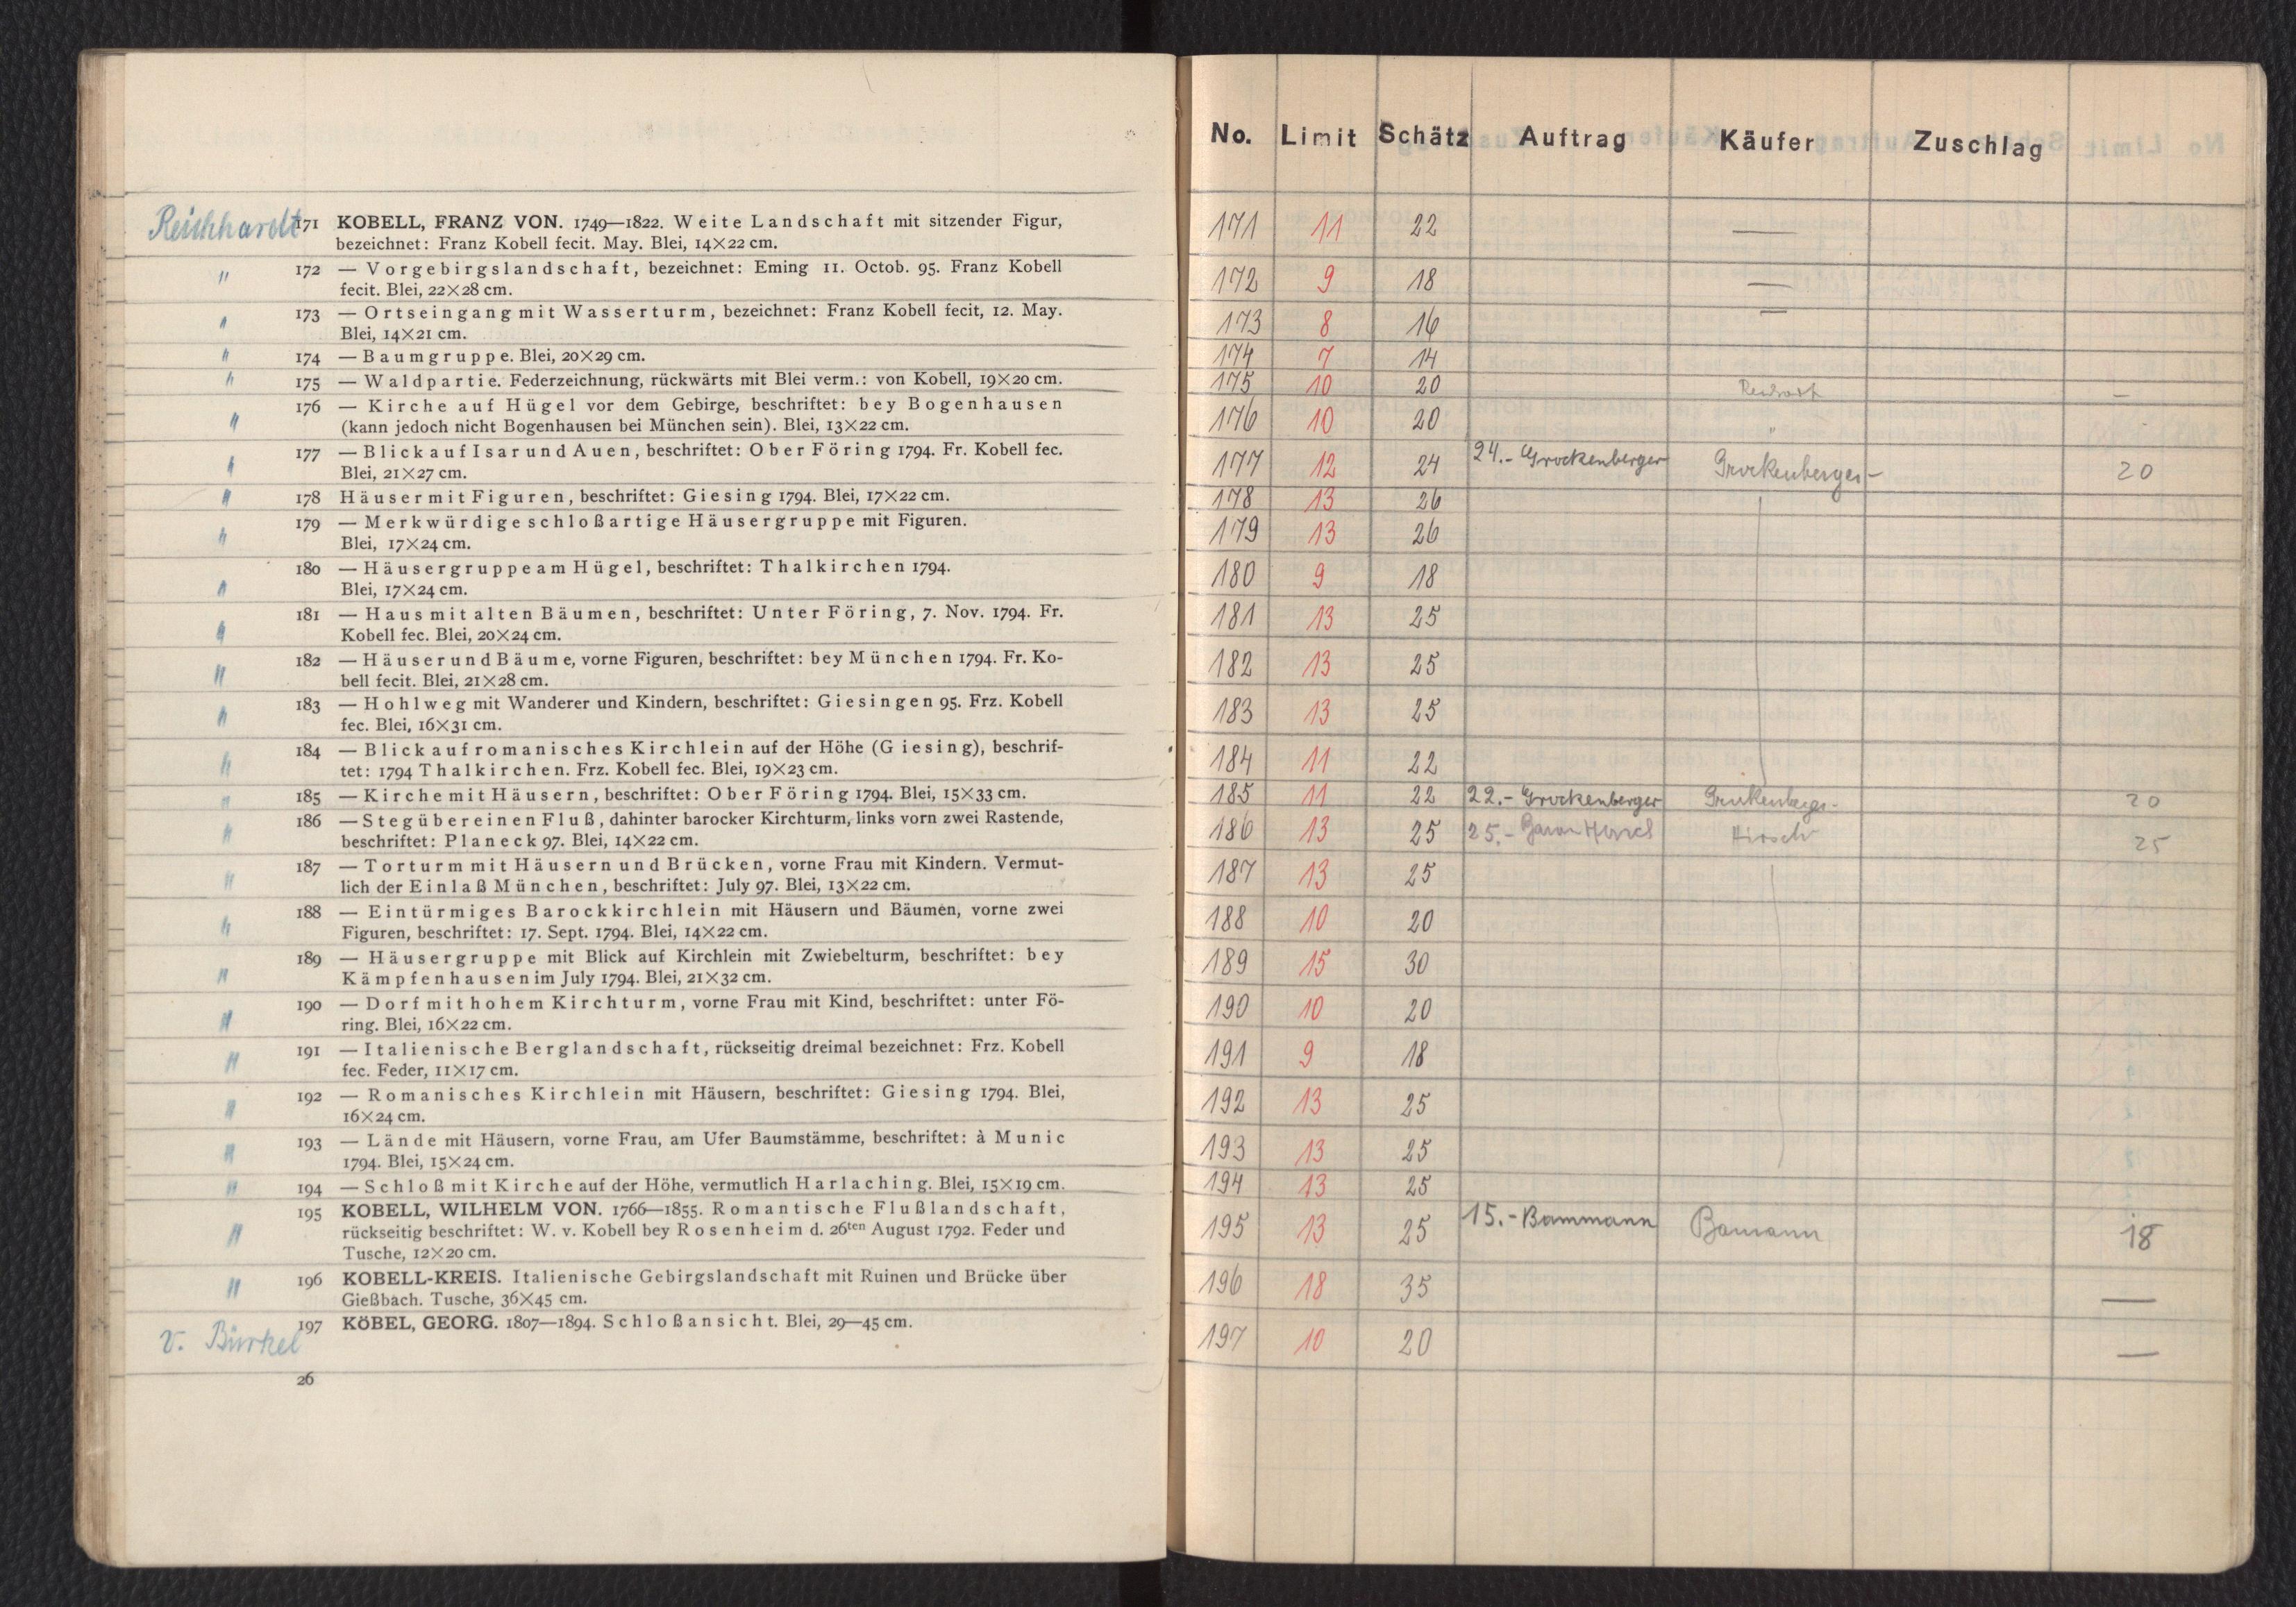 Reichhardt 171 KOBELL, FRANZ VON. 1749—1822. Weite Landschaft mit sitzender Figur,
bezeichnet: Franz Kobell fecit. May. Blei, 14×22 cm.
" 172 — Vorgebirgslandschaft, bezeichnet: Eming 11. Octob. 95. Franz Kobell
fecit. Blei, 22×28 cm.
" 173 — Ortseingang mit Wasserturm, bezeichnet: Franz Kobell fecit, 12. May.
Blei, 14×21 cm.
" 174 — Baumgruppe. Blei, 20×29 cm.
" 175 — Waldpartie. Federzeichnung, rückwärts mit Blei verm.: von Kobell, 19×20 cm.
" 176 — Kirche auf Hügel vor dem Gebirge, beschriftet: bey Bogenhausen
(kann jedoch nicht Bogenhausen bei München sein). Blei, 13×22 cm.
" 177 — Blick auf Isar und Auen, beschriftet: Ober Föring 1794. Fr. Kobell fec.
Blei, 21×27 cm.
" 178 Häuser mit Figuren, beschriftet: Giesing 1794. Blei, 17×22 cm.
" 179 — Merkwürdige schloßartige Häusergruppe mit Figuren.
Blei, 17×24 cm.
" 180 — Häusergruppe am Hügel, beschriftet: Thalkirchen 1794.
Blei, 17×24 cm.
" 181 — Haus mit alten Bäumen, beschriftet: Unter Föring, 7. Nov. 1794. Fr.
Kobell fec. Blei, 20×24 cm.
" 182 — Häuser und Bäume, vorne Figuren, beschriftet: bey München 1794. Fr. Ko-
bell fecit. Blei, 21×28 cm.
" 183 — Hohlweg mit Wanderer und Kindern, beschriftet: Giesingen 95. Frz. Kobell
fec. Blei, 16×31 cm.
" 184 — Blick auf romanisches Kirchlein auf der Höhe (Giesing), beschrif-
tet: 1794 Thalkirchen. Frz. Kobell fec. Blei, 19×23 cm.
" 185 — Kirche mit Häusern, beschriftet: Ober Föring 1794. Blei, 15×33 cm.
" 186 — Steg über einen Fluß, dahinter barocker Kirchturm, links vorn zwei Rastende,
beschriftet: Planeck 97. Blei, 14×22 cm.
" 187 — Torturm mit Häusern und Brücken, vorne Frau mit Kindern. Vermut-
lich der Einlaß München, beschriftet: July 97. Blei, 13×22 cm.
" 188 — Eintürmiges Barockkirchlein mit Häusern und Bäumen, vorne zwei
Figuren, beschriftet: 17. Sept. 1794. Blei, 14×22 cm.
" 189 — Häusergruppe mit Blick auf Kirchlein mit Zwiebelturm, beschriftet: bey
Kämpfenhausen im July 1794. Blei, 21×32 cm.
" 190 — Dorf mit hohem Kirchturm, vorne Frau mit Kind, beschriftet: unter Fö-
ring. Blei, 16×22 cm.
" 191 — Italienische Berglandschaft, rückseitig dreimal bezeichnet: Frz. Kobell
fec. Feder, 11×17 cm.
" 192 — Romanisches Kirchlein mit Häusern, beschriftet: Giesing 1794. Blei,
16×24 cm.
" 193 — Lände mit Häusern, vorne Frau, am Ufer Baumstämme, beschriftet: à Munic
1794. Blei, 15×24 cm.
" 194 — Schloß mit Kirche auf der Höhe, vermutlich Harlaching. Blei, 15×19 cm.
" 195 KOBELL, WILHELM VON. 1766—1855. Romantische Flußlandschaft,
rückseitig beschriftet: W. v. Kobell bey Rosenheim d. 26ten August 1792. Feder und
Tusche, 12×20 cm.
" 196 KOBELL-KREIS. Italienische Gebirgslandschaft mit Ruinen und Brücke über
Gießbach. Tusche, 36×45 cm.
v. Bürkel 197 KÖBEL, GEORG. 1807—1894. Schloßansicht. Blei, 29—45 cm.
26
No. Limit Schätz Auftrag Käufer Zuschlag
171 11 22 —
172 9 18 —
173 8 16 —
174 7 14
175 10 20 —
176 10 20 "
177 12 24 24.- Grockenberger Grockenberger - 20
178 13 26
179 13 26
180 9 18
181 13 25
182 13 25
183 13 25
184 11 22
185 11 22 22.- Grockenberger Grockenberger - 20
186 13 25 25.- Baron Hirsch Hirsch 25
187 13 25
188 10 20
189 15 30
190 10 20
191 9 18
192 13 25
193 13 25
194 13 25
195 13 25 15.- Bammann Bamann 18
196 18 35 —
197 10 20 —